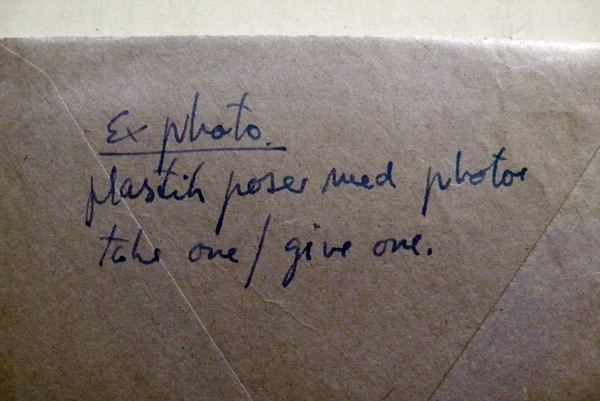 Ex photo.
plastik poser med photos
take one / give one.